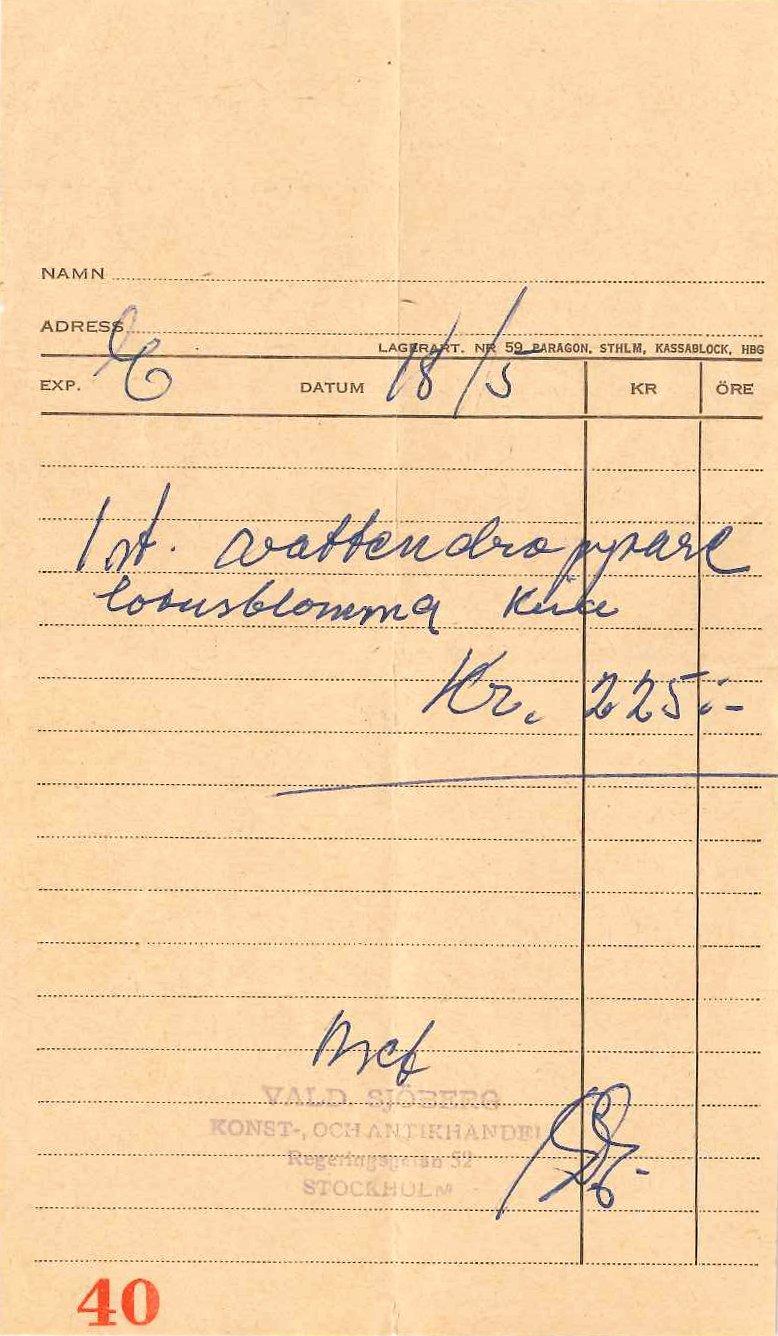 NAMN
ADRESS
LAGERART. NR 59 PARAGON, STHLM, KASSABLOCK, HBG
EXP. DATUM 18/5 KR ÖRE
1 st. vattendroppare
lotusblomma Kina
Kr. 225:-
VALD SJÖBERG
KONST-, OCH ANTIKHANDEL
Regeringsgatan 52
STOCKHOLM
40